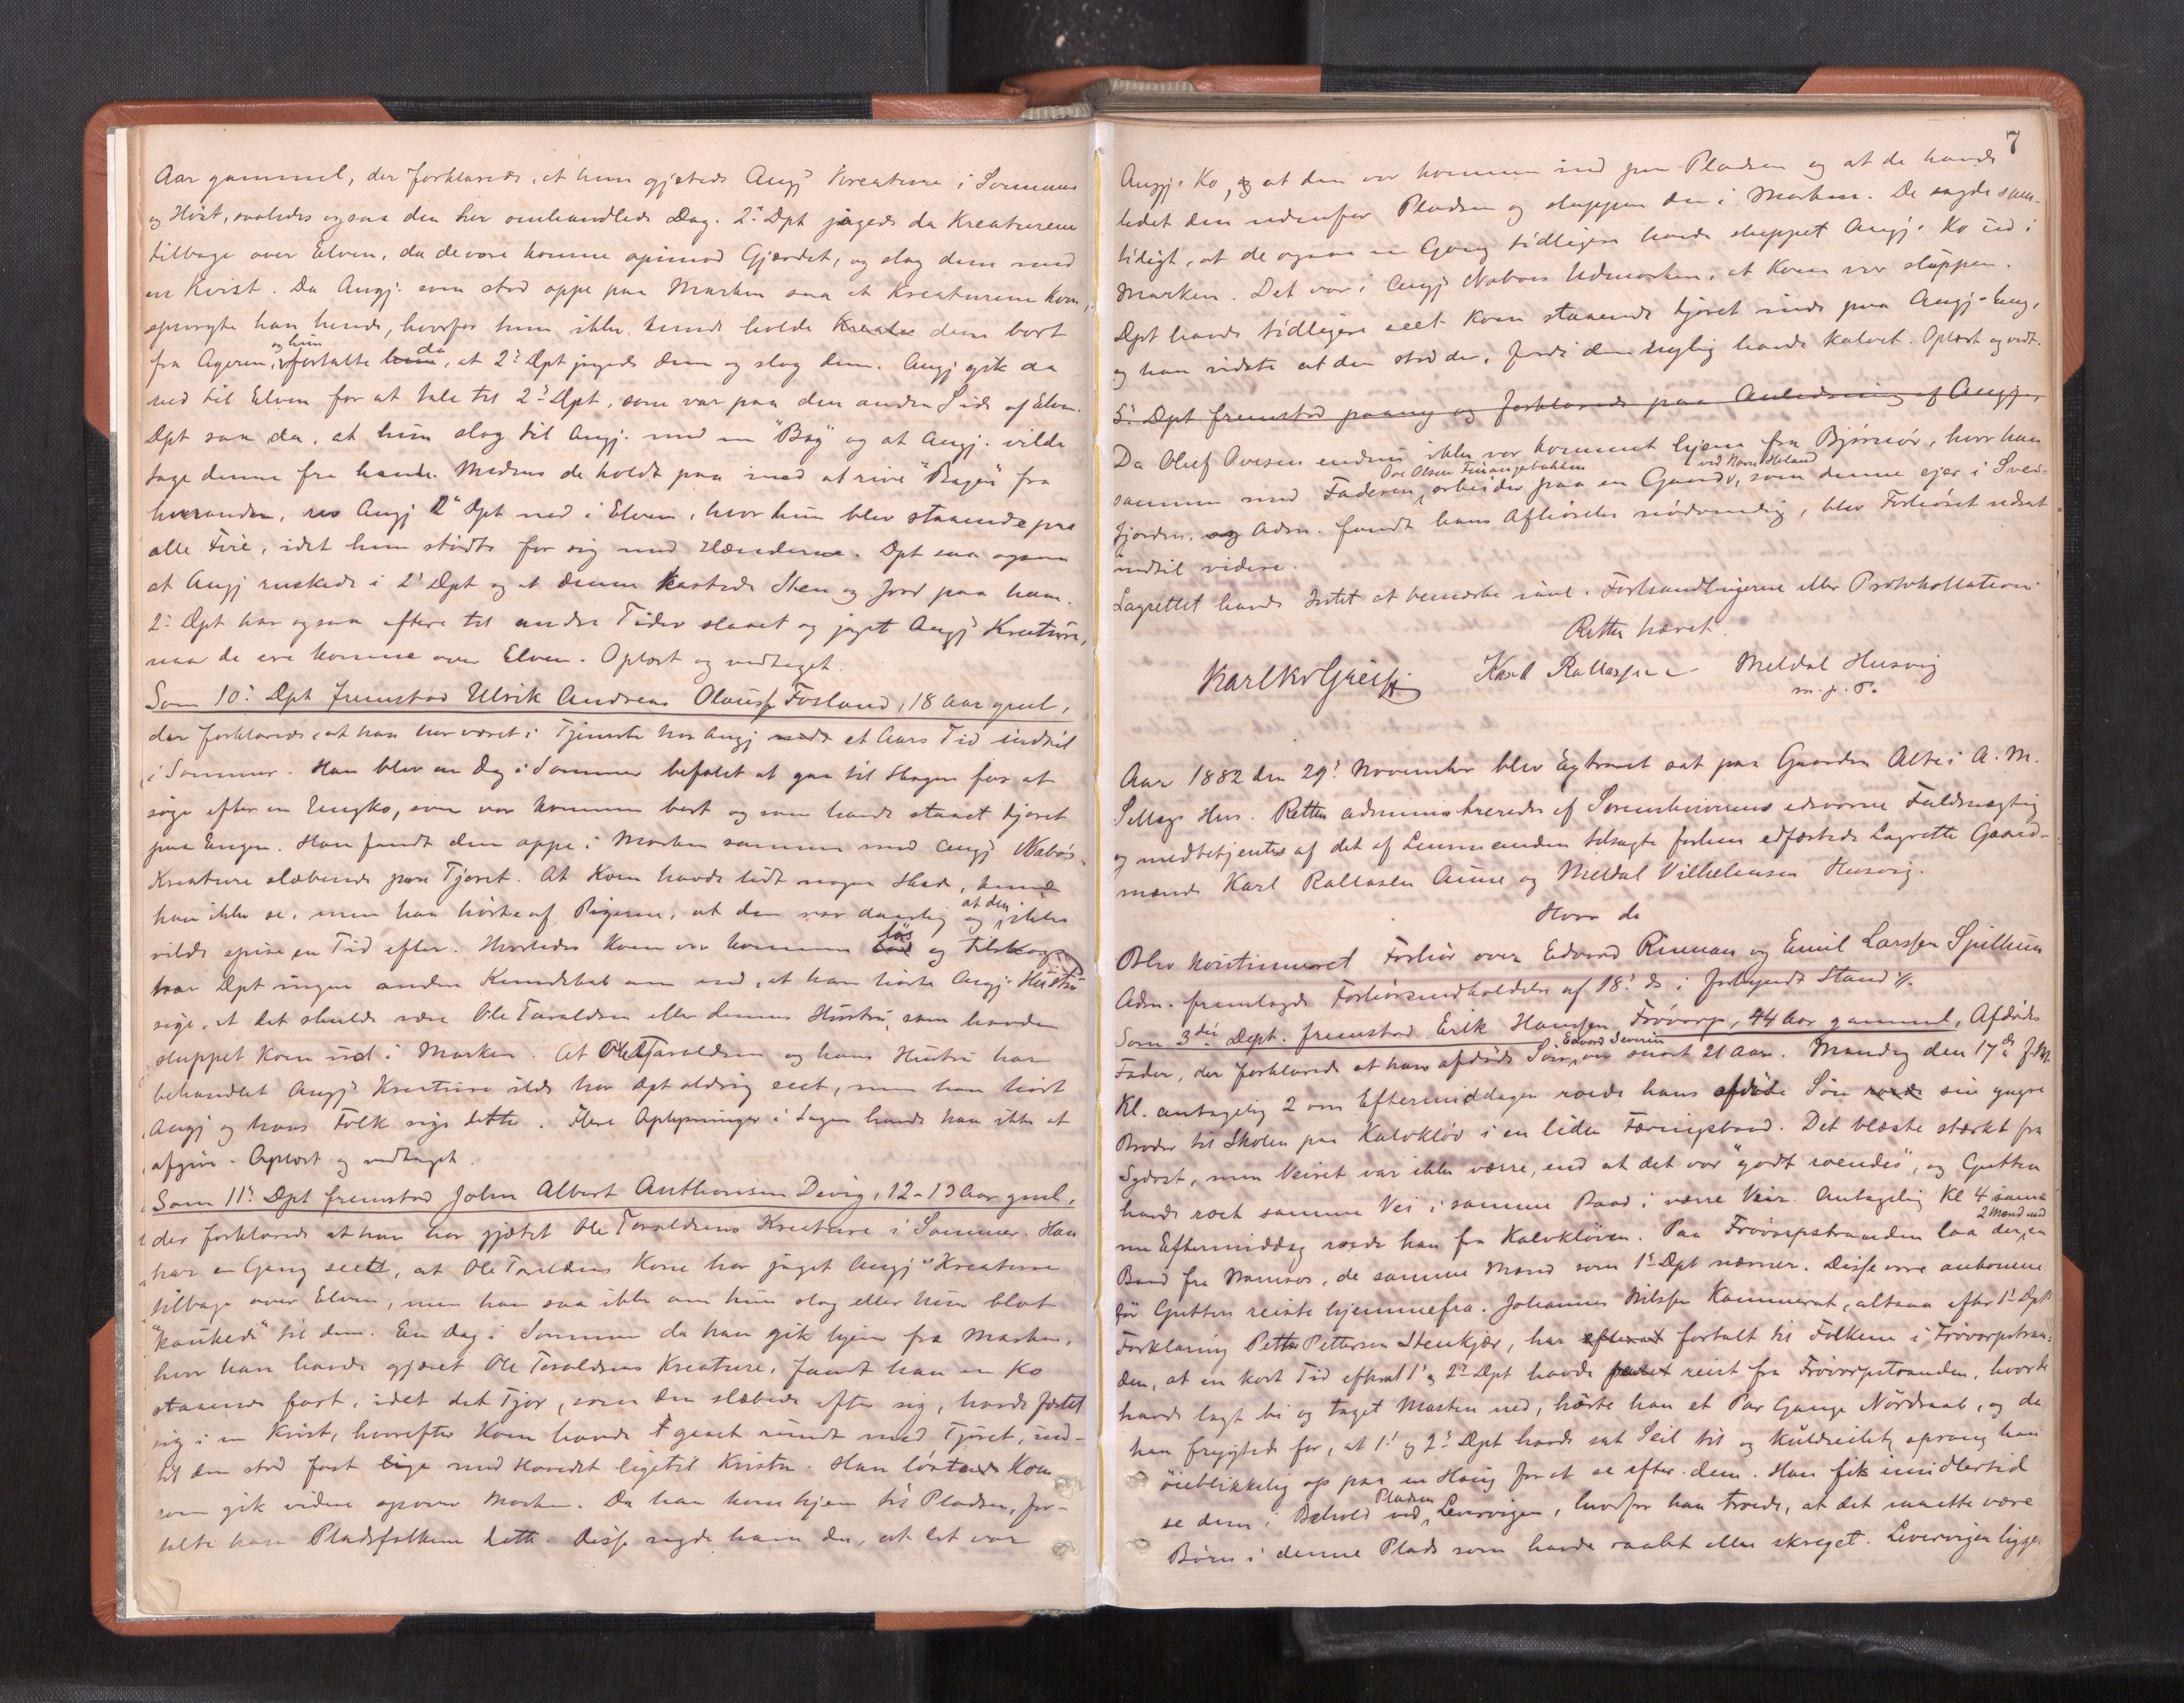 Aar gammel, der forklarede, at hun gjætede Angj's Kreature i Sommer
og Høst, saaledes ogsaa den her omhandlede Dag. 2' Dpt jagede da Kreaturene
tilbage over Elven, da de vare komne opimod Gjærdet, og slog dem med
en Kvist. Da Angj. som stod oppe paa Marken saa at Kreaturene kom,
spurgte han hende, hvorfor hun ikke kunde holde Kreatu dem bort
fra Ageren, og hun fortalte ham da, at 2' Dpt jagede dem og slog dem. Angj gik da
ned til Elven for at tale til 2' Dpt, som var paa den anden Side af Elven.
Dpt saa da, at hun slog til Angj. med en "Bag" og at Angj. vilde
tage denne fra hende. Medens de holdt paa med at rive "Bagen" fra
hverandre, rev Angj 2' Dpt ned i Elven, hvor hun blev staaende paa
alle Fire, idet hun stødte for sig med Hænderne. Dpt saa ogsaa
at Angj ruskede i 2' Dpt og at denne kastede Sten og Jord paa ham.
2' Dpt har ogsaa oftere til andre Tider slaaet og jaget Angj's Kreature,
naar de ere komne over Elven. Oplæst og vedtaget.
Som 10' Dpt fremstod Ulrik Andreas Olausen Fosland, 18 Aar gml,
der forklarede, at han har været i Tjeneste hos Angj et Aars Tid indtil
i Sommer. Han blev en Dag i Sommer befalet at gaa til Skogen for at
søge efter en Ungko, som var kommen bort og som havde staaet tjoret
paa Engen. Han fandt den oppe i Marken sammen med Angj's Nabos
Kreature slæbende paa Tjoret. At Koen havde lidt nogen Skade, kunde
han ikke se, men han hørte af Pigerne, at den var daarlig og at den ikke
vilde spise en Tid efter. Hvorledes Koen var kommen løs og tilskogs
har Dpt ingen anden Kundskab om end, at han hørte Angj's Hustru
sige, at det skulde være Ole Taraldsen eller dennes Hustru, som havde
sluppet Koen ud i Marken. At Ole Taraldsen og hans Hustru har
behandlet Angj's Kreature ilde har Dpt aldrig seet, men han hørt
Angj og hans Folk sige dette. Flere Oplysninger i Sagen havde han ikke at
afgive. Oplæst og vedtaget.
Som 11' Dpt fremstod John Albert Anthonsen Devig, 12-13 Aar gml,
der forklarede at han har gjætet Ole Taraldsens Kreature i Sommer. Han
har en Gang seet, at Ole Taraldsens Kone har jaget Angj's Kreature
tilbage over Elven, men han saa ikke om hun slog eller hun blot
"kaukede" til dem. En Dag i Sommer da han gik hjem fra Marken,
hvor han havde gjætet Ole Taraldsens Kreature, fandt han en Ko
staaende fast, idet det Tjor, som den slæbede efter sig, havde fæstet
sig i en Kvist, hvorefter Koen havde gaaet rundt med Tjoret, ind-
til den stod fast lige med Hovedet ligetil Kvisten. Han løste Koen
som gik videre opover Marken. Da han kom hjem til Pladsen, for-
talte han Pladsfolkene dette. Disse sagde ham da, at det var
7
Angj's Ko, og at den var kommen ind paa Pladsen og at de havde
ledet den udenfor Pladsen og sluppen den i Marken. De sagde sam-
tidigt, at de ogsaa en Gang tidligere havde sluppet Angj's Ko ud i
Marken. Det var i Angj's Nabos Udmarken, at Koen var sluppen.
Dpt havde tidligere seet Koen staaende tjoret inde paa Angj's Eng,
og han vidste at den stod der, fordi den nylig havde kalvet. Oplæst og vedt.
5' Dpt fremstod paany og forklarede paa Anledning af Angj.,
Da Oluf Ovesen endnu ikke var kommet hjem fra Bjørnør, hvor han
sammen med Faderen, Ove Olsen arbeider paa en Gaard, som denne ejer i Sves-
fjorden, og Adm. fandt hans Afhørelse nødvendig, blev Forhøret udsat
indtil videre.
Lagrettet havde Intet at bemærke imod Forhandlingerne eller Protokollationen
Retten hævet.
Karl Rallassen Meldal Husvig
m. p. P.
Aar 1882 den 29' November blev Extraret sat paa Gaarden Alte i A. M.
Hus. Retten administreredes af Sorenskriverens edsvorne Fuldmægtig
og medbetjentes af det af Lensmanden tilsagte forhen edfæstede Lagrette Gaard-
mænde Karl Rallassen Aune og Meldal Vilhelmsen Husvig.
Hvor da
Blev kontinueret Forhør over Edvard Rinnan og Emil Larssen Spillum
Adm. fremlagde Forhørsindholdelse af 18' ds i fuldyndt Stand.
Som 3die Dept. fremstod Erik Hanssen Frøvarp, 44 Aar gammel, Afdødes
Fader, der forklarede at hans afdøde Søn, Edvard Severin var snart 21 Aar. Mandag den 17de f.M.
Kl. antagelig 2 om Eftermiddagen roede hans afdøde Søn sin yngre
Broder til Skolen paa Kalvkløv i en liden Færingsbaad. Det blæste stærkt fra
Sydost, men Veiret var ikke værre, end at det var "godt roendes", og Gutten
havde roet samme Vei i samme Baad i værre Veir. Antagelig Kl 4 sam-
me Eftermiddag roede han fra Kalvkløven. Paa Frøvarpstranden laa der 2 Mænd med en
Baad fra Namsos, de samme Mænd som 1' Dpt nævner. Disse vare ankomne
før Gutten reiste hjemmefra. Johannes Nilssen Kammerat, altsaa efter 1' Dpts
Forklaring Petter Pettersen Stenkjær, har fortalt til Folkene i Frøvarpstran-
den, at en kort Tid efterat 1' og 2' Dpt havde reist fra Frøvarpstranden, hvor de
havde lagt bi og taget Masten ned, hørte han et Par Gange Nødraab, og da
han frygtede for, at 1' og 2' Dpt havde sat Seil til og kuldseilet, sprang han
øieblikkelig op paa en Haug for at se efter dem. Han fik imidlertid
se dem i Behold ved Pladsen Levervigen, hvorfor han troede, at det maatte være
Børn i denne Plads som havde raabt eller skreget. Levervigen ligger